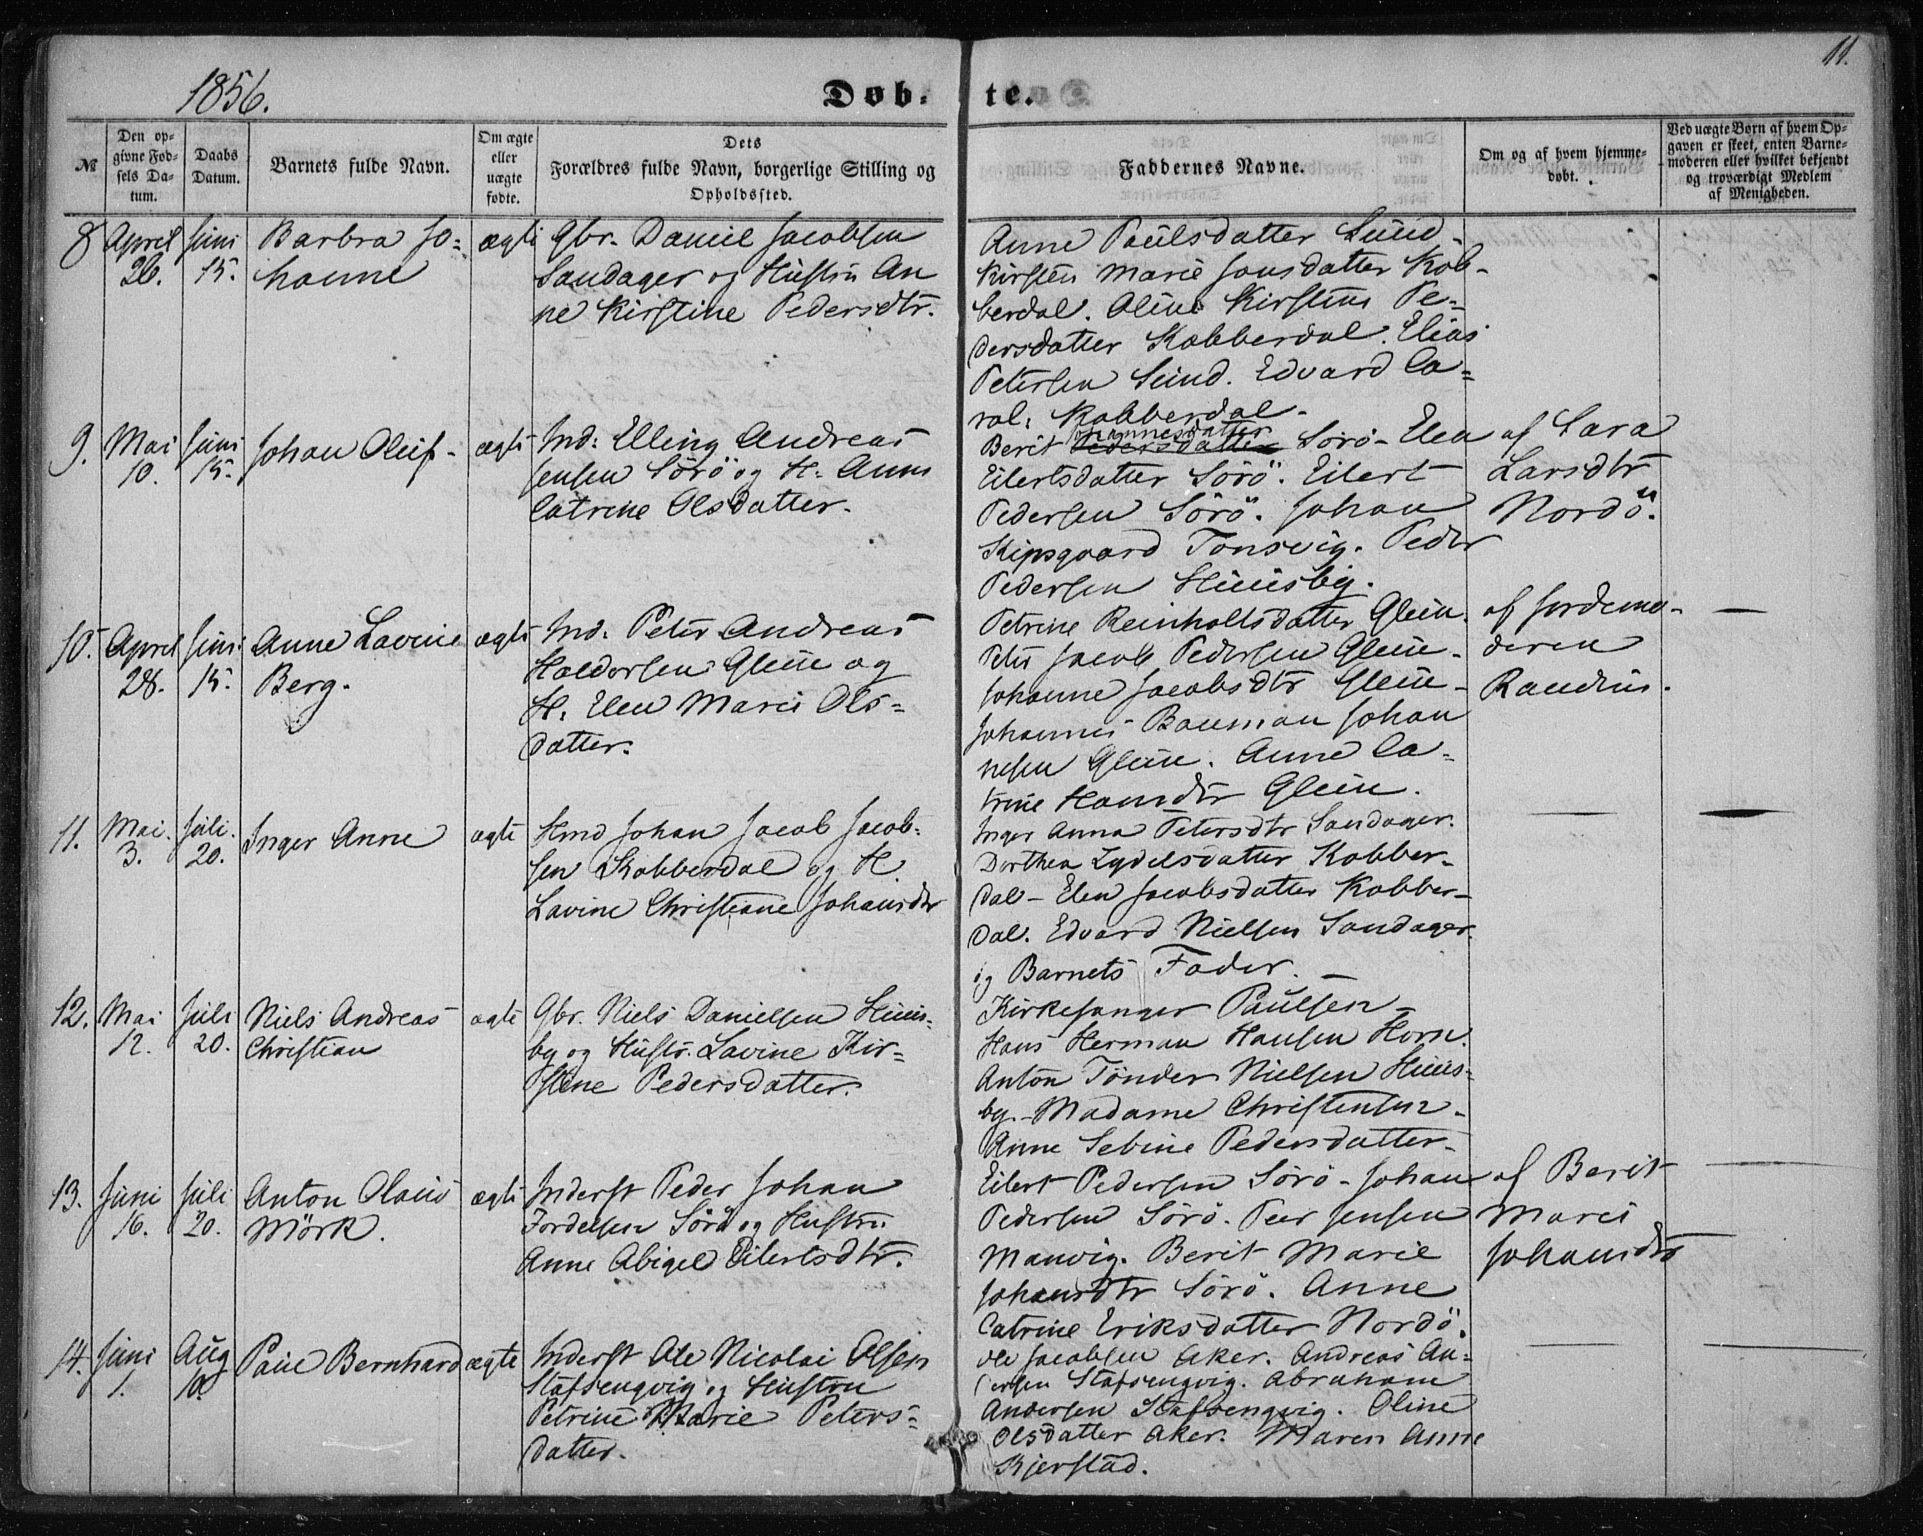 11.
1856.
Døb- te.
№
Den op-
givne Fød-
sels Da-
tum.
Daabs
Datum.
Barnets fulde Navn.
Om ægte
eller
uægte
fødte.
Dets
Forældres fulde Navn, borgerlige Stilling og
Opholdssted.
Faddernes Navne.
Om og af hvem hjemme-
døbt.
Ved uægte Børn af hvem Op-
gaven er skeet, enten Barne-
moderen eller hvilket bekjendt
og troværdigt Medlem
af Menigheden.
8 April 26. Juni 15.
Barbra Jo-
hanne
ægte
Gbr. Daniel Jacobsen
Sandager og Hustru An
ne Kirstine Pedersdtr.
Anne Paulsdatter Sund-
Kirsten Marie Jonsdatter Kob-
berdal. Oline Kirstine Pe-
dersdatter Kobberdal. Elias
Petersen Sund. Edvard Ca-
rol: Kobberdal-
9. Mai 10. Juni 15.
Johan Oluf-
ægte
Ind: Elling Andreas
Jensen Sörö og H. Anne
Catrine Olsdatter.
Johannesdatter
Berit Pedersdatter Sörö- Elen
Eilertsdatter Sörö. Eilert
Pedersen Sörö. Johan
Kipsgaard Tonsvig. Peder
Pedersen Huusby.
af Sara
Larsdtr
Nordö.
10. April 28. Juni 15.
Anne Lovine
Berg.
ægte
Ind. Peter Andreas
Haldorsen Glein og
H. Elen Marie Ols-
datter.
Petrine Reinholtsdatter Glein.
Peter Jacob Pedersen Glein-
Johanne Jacobsdtr Glein-
Johannes Bauman Johan
nesen Glein. Anne Ca-
trine Hansdtr Glein.
af Jordemo-
deren
Randine.
11. Mai. 3. Juli. 20.
Inger Anne
ægte
Hmd Johan Jacob Jacob-
sen Kobberdal og H
Lavine Christiane Johansdtr
Inger Anna Petersdtr Sandager.
Dorthea Zydelsdatter Kobber-
dal- Elen Jacobsdatter Kobber-
dal. Edvard Nielsen Sandager.
og Barnets Fader.-
12. Mai 12. Juli 20.
Niels Andreas
Christian
ægte
Gbr. Niels Danielsen Huus-
by og Hustr. Lavine Kir-
stine Pedersdatter.
Kirkesanger Paulsen-
Hans Herman Hansen Horn.
Anton Tönder Nielsen Huus-
by.- Madame Christensen-
Anne Sebine Pedersdatter-
13. Juni 16. Juli 20.
Anton Olaus
Mörk.
ægte
Inderst Peder Johan
Fordelsen Sörö og Hustru
Anne Abigel Eilertsdtr.
Eilert Pedersen Sörö- Johan
Pedersen Sörö. Peer Jensen
Manvig. Berit Marie
Johansdtr Sörö. Anne
Catrine Eriksdatter Nordö.
af Berit
Marie
Johansdtr
14. Juni 1. Aug 10.
Paul Bernhard
ægte
Inderst Ole Nicolai Olsen
Stafsengvig og Hustru
Petrine Marie Peters-
datter.
Ole Jacobsen Aker. Andreas An-
dersen Stafsengvig. Abraham
Andersen Stafsengvig. Oline
Olsdatter Aker. Maren Anne
Kjerstad.